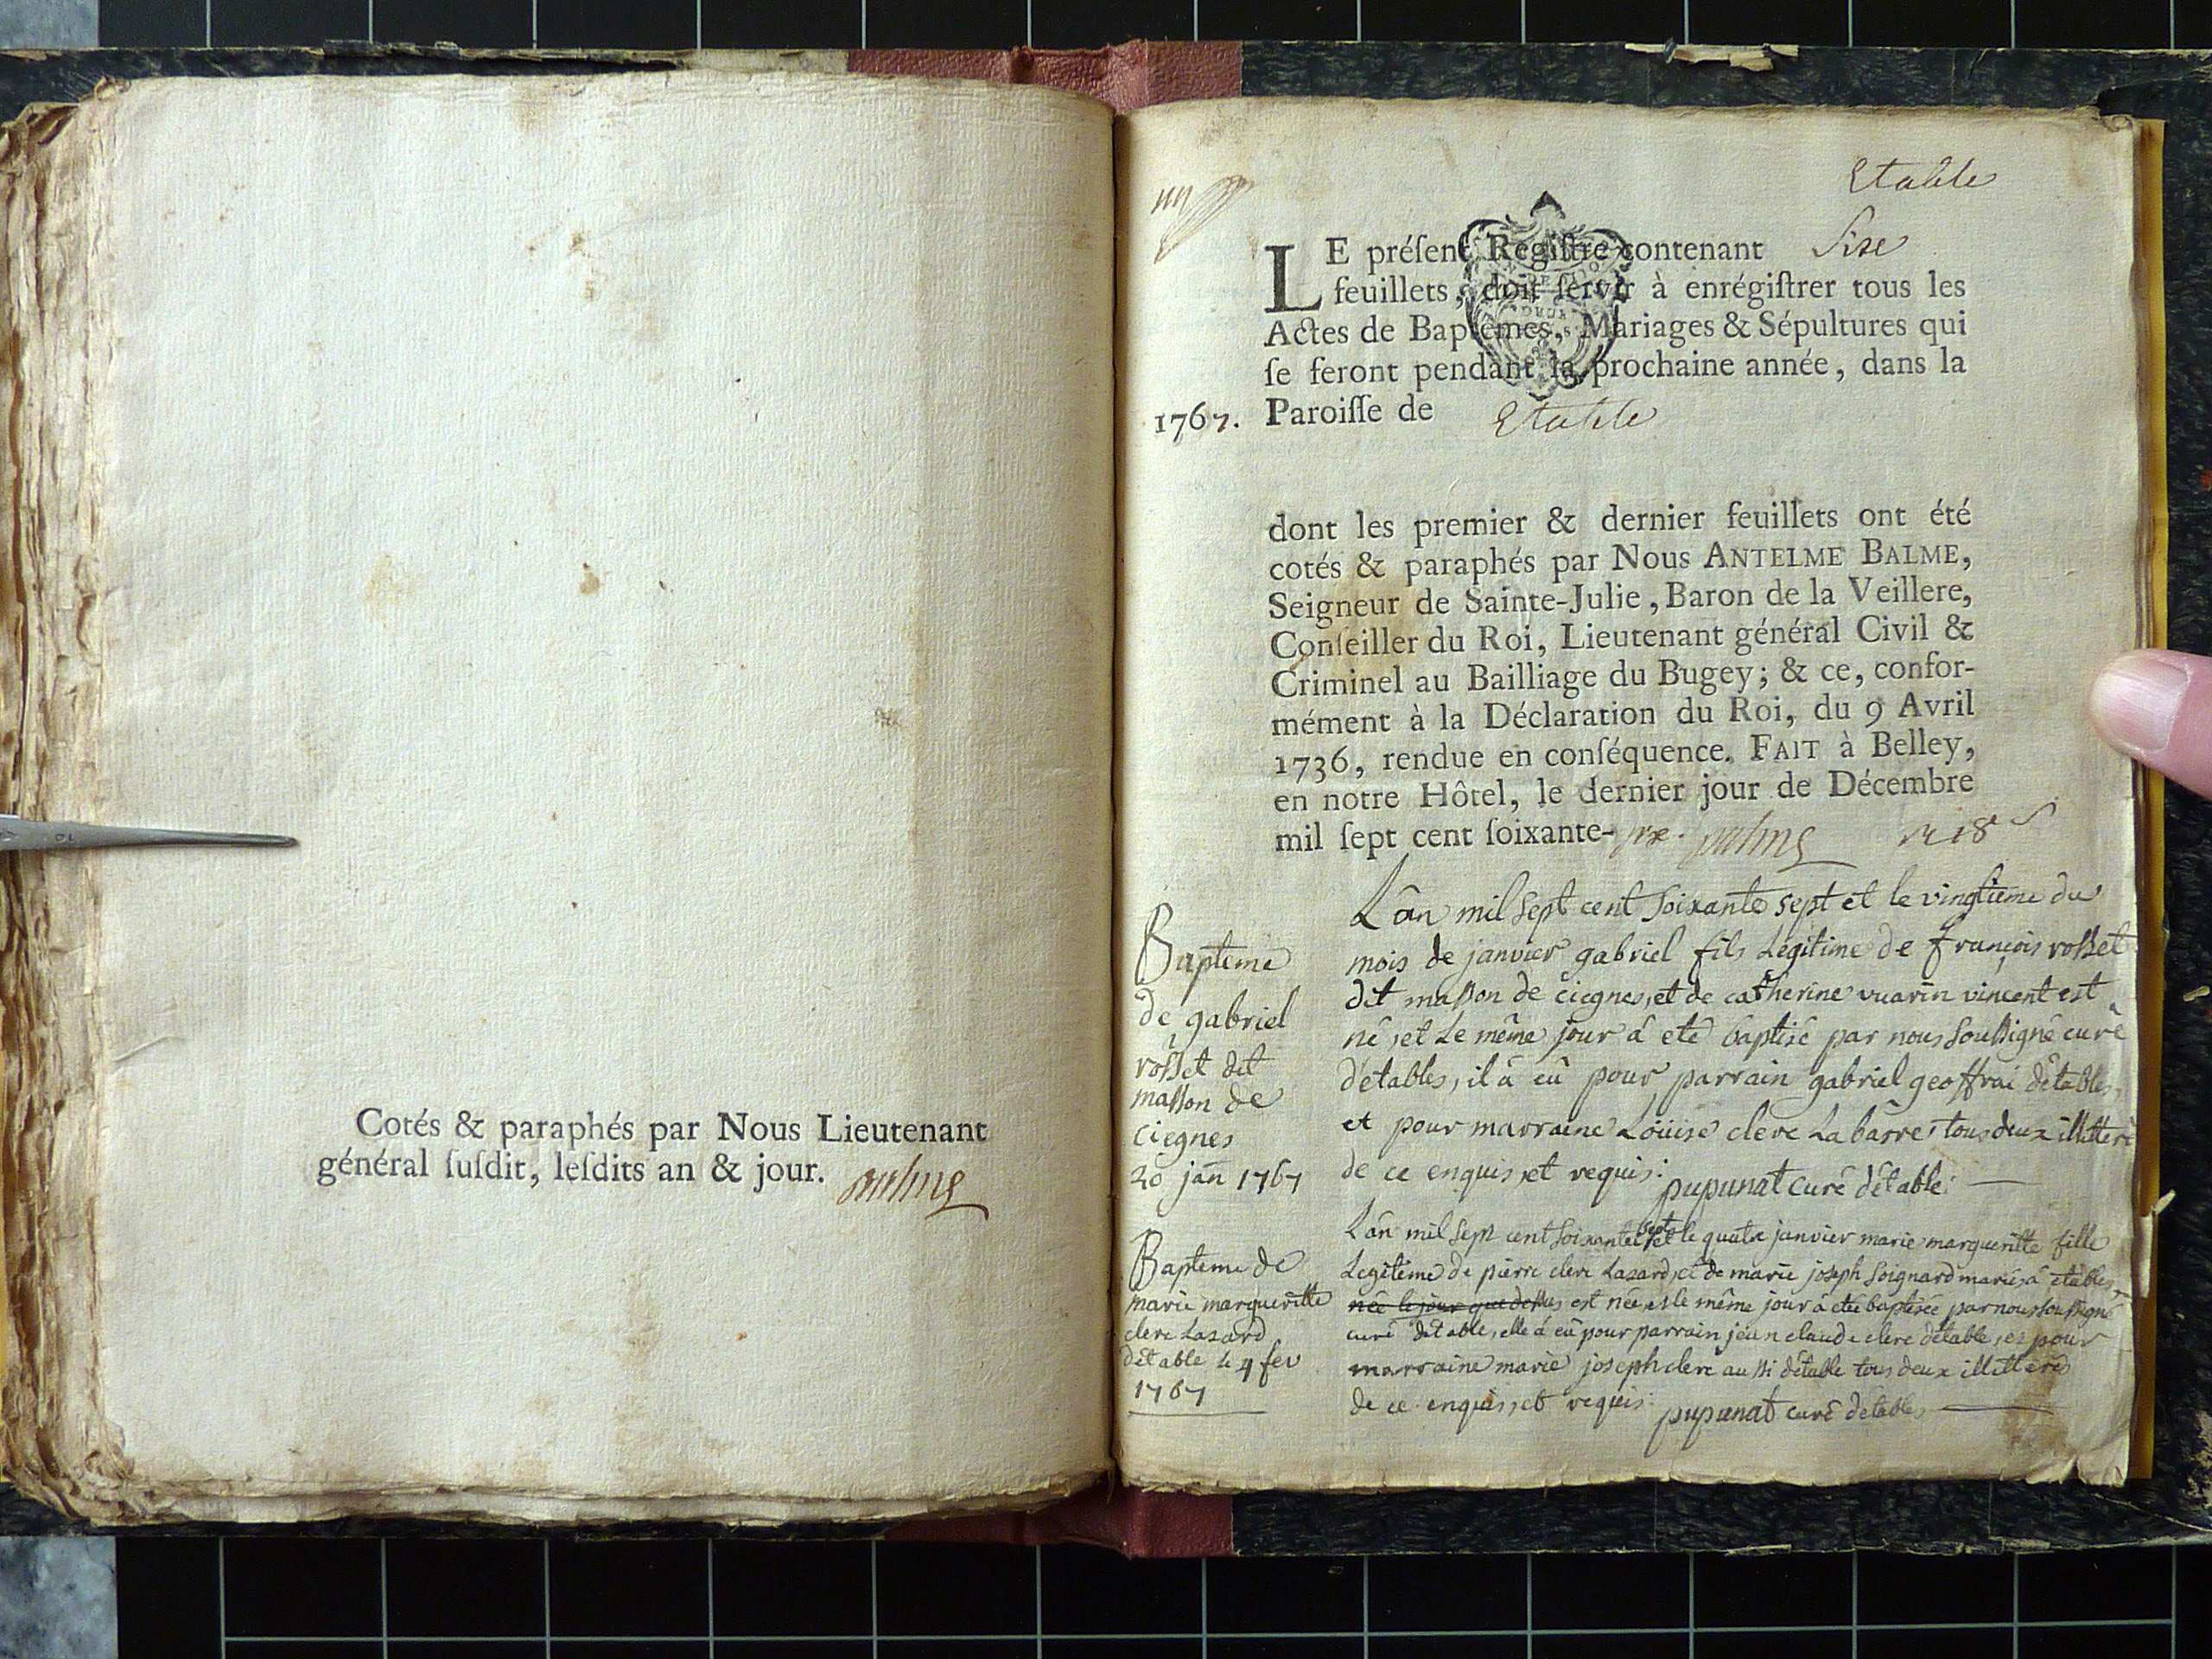 Cotés & paraphés par Nous Lieutenant
général ſuſdit, leſdits an & jour.
Etable
LE préſent Regiſtre contenant Sixe
feuillets, doit ſervir à enrégiſtrer tous les
Actes de Baptêmes, Mariages & Sépultures qui
ſe feront pendant la prochaine année, dans la
1767. Paroiſſe de Etable
dont les premier & dernier feuillets ont été
cotés & paraphés par Nous ANTELME BALME,
Seigneur de Sainte-Julie, Baron de la Veillere,
Conſeiller du Roi, Lieutenant général Civil &
Criminel au Bailliage du Bugey; & ce, confor-
mément à la Déclaration du Roi, du 9 Avril
1736, rendue en conſéquence. FAIT à Belley,
en notre Hôtel, le dernier jour de Décembre
mil ſept cent ſoixante-
Bapteme
de gabriel
rosset dit
masson de
ciegnes
20 jan 1767
L'an mil sept cent soixante sept et le vingtieme du
mois de janvier gabriel fils Légitime de françois rosset
dit masson de ciegnes, et de catherine vuarin vincent est
né, et le même jour á eté baptisé par nous soussigné curé
d'etables, il á eû pour parrain gabriel geoffrai d'etables,
et pour marraine Loüise clerc Labarre, tous deux illitteré
de ce enquis, et requis:
pupunat curé d'étable.
Bapteme de
marie margueritte
clerc Lazard
d'etable le 4 fev
1767
L'an mil sept cent soixante sept et le quatre janvier marie margueritte fille
Legitime de pierre clerc Lazard, et de marie joseph soignard mariés á etables,
née le jour que dessus est née, et le même jour á eteé baptisée par nous soussigné
curé d'etable, elle á eû pour parrain jean claude clerc d'etable, et pour
marraine marie joseph clerc aussi d'étable tous deux illitterés
de ce enquis, et requis:
pupunat curé d'etable,